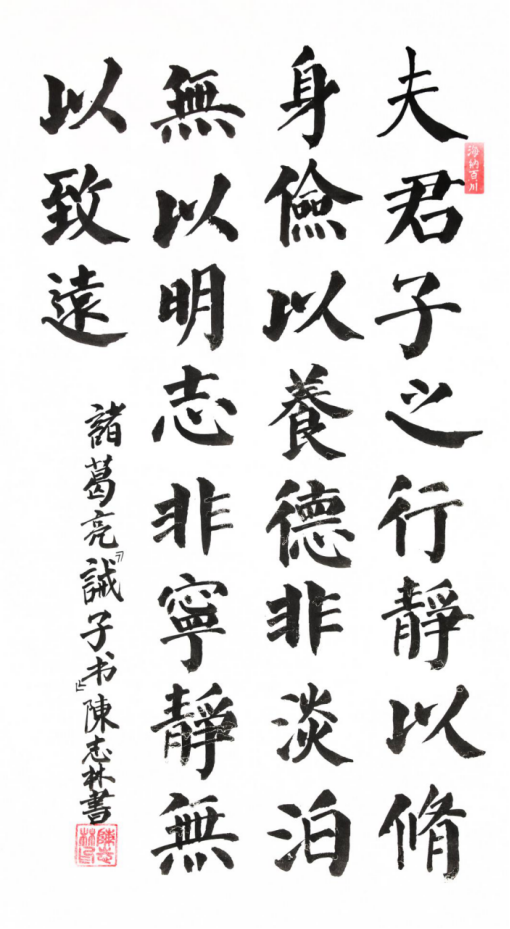 夫君子之行靜以脩
身儉以養德非淡泊
無以明志非寧靜無
以致遠
諸葛亮『誡子书』陳志林書
海納百川
陳志林印